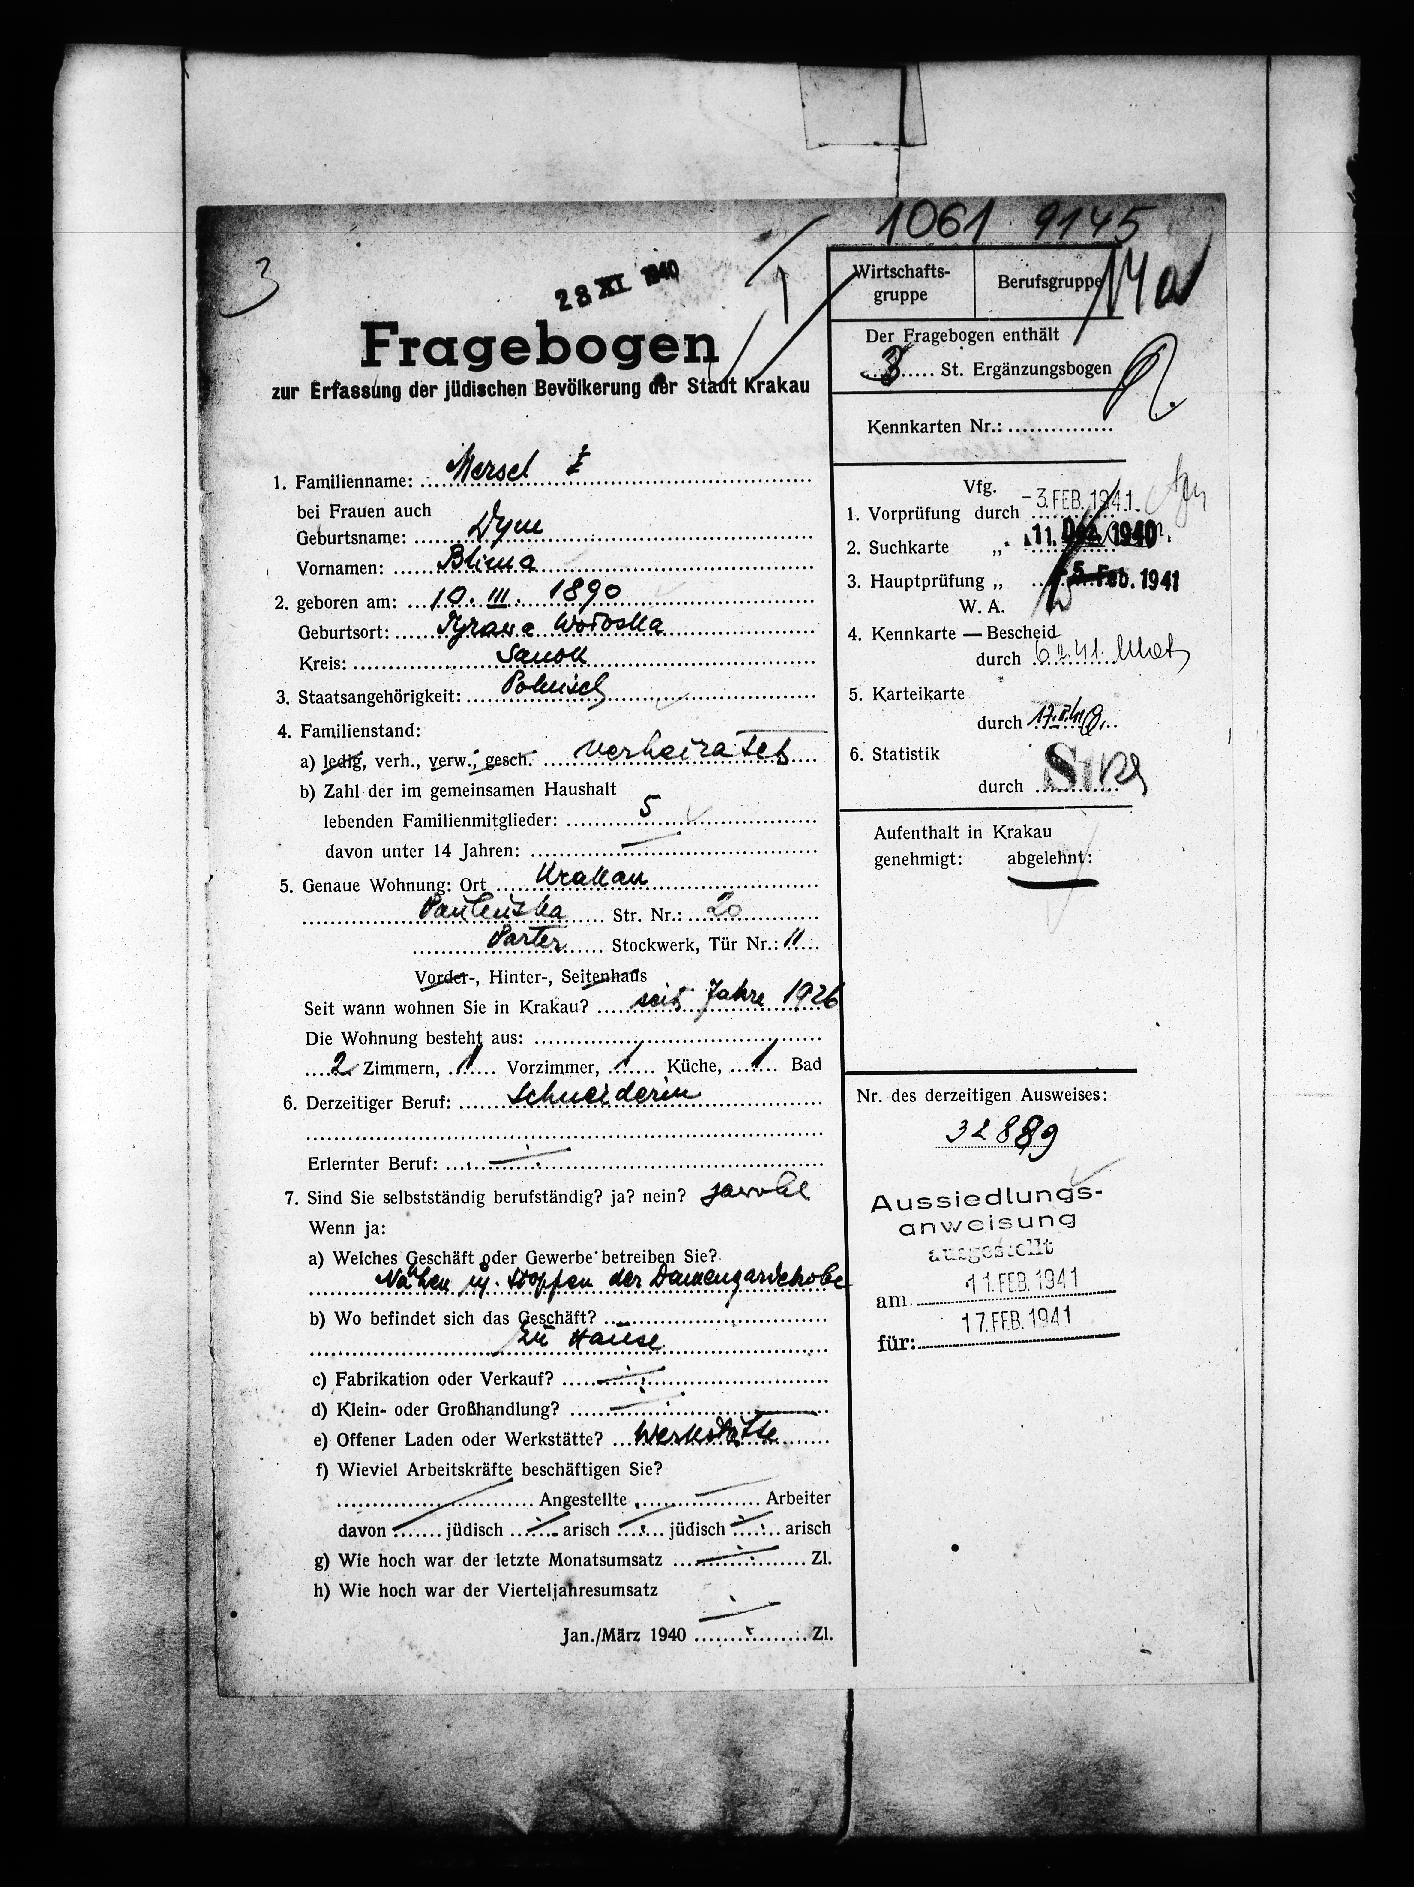 1061 9145
3
28 XI. 1940
Fragebogen
zur Erfassung der jüdischen Bevölkerung der Stadt Krakau
1. Familienname: Mersel
bei Frauen auch
Geburtsname: Dym
Vornamen: Blima
2. geboren am: 10. III. 1890
Geburtsort: Tyrawa Wołoska
Kreis: Sanok
3. Staatsangehörigkeit: Polnisch
4. Familienstand:
a) ledig, verh., verw., gesch. verheiratet
b) Zahl der im gemeinsamen Haushalt
lebenden Familienmitglieder: 5
davon unter 14 Jahren: —
5. Genaue Wohnung: Ort Krakau
Paulinska Str. Nr.: 20
Parter Stockwerk, Tür Nr.: 11
Vorder-, Hinter-, Seitenhaus
Seit wann wohnen Sie in Krakau? seit Jahre 1926
Die Wohnung besteht aus:
2 Zimmern, 1 Vorzimmer, 1 Küche, 1 Bad
6. Derzeitiger Beruf: Schneiderin
Erlernter Beruf:
7. Sind Sie selbstständig berufständig? ja? nein? jawohl
Wenn ja:
a) Welches Geschäft oder Gewerbe betreiben Sie?
Nähen u. stopfen der Damengarderobe
b) Wo befindet sich das Geschäft?
zu Hause
c) Fabrikation oder Verkauf?
d) Klein- oder Großhandlung?
e) Offener Laden oder Werkstätte? Werkstätte
f) Wieviel Arbeitskräfte beschäftigen Sie?
Angestellte Arbeiter
davon jüdisch arisch jüdisch arisch
g) Wie hoch war der letzte Monatsumsatz Zl.
h) Wie hoch war der Vierteljahresumsatz
Jan./März 1940 Zl.
Wirtschafts-
gruppe
Berufsgruppe
14a
Der Fragebogen enthält
3 St. Ergänzungsbogen
Kennkarten Nr.:
Vfg.
1. Vorprüfung durch -3. FEB. 1941.
2. Suchkarte „ 11. Dez. 1940
3. Hauptprüfung „ 5. Feb. 1941
W. A.
4. Kennkarte — Bescheid
durch 6.II.41.
5. Karteikarte
durch 17.II.41
6. Statistik
durch
Aufenthalt in Krakau
genehmigt: abgelehnt:
Nr. des derzeitigen Ausweises:
32889
Aussiedlungs-
anweisung
ausgestellt
am 11. FEB. 1941
für: 17. FEB. 1941